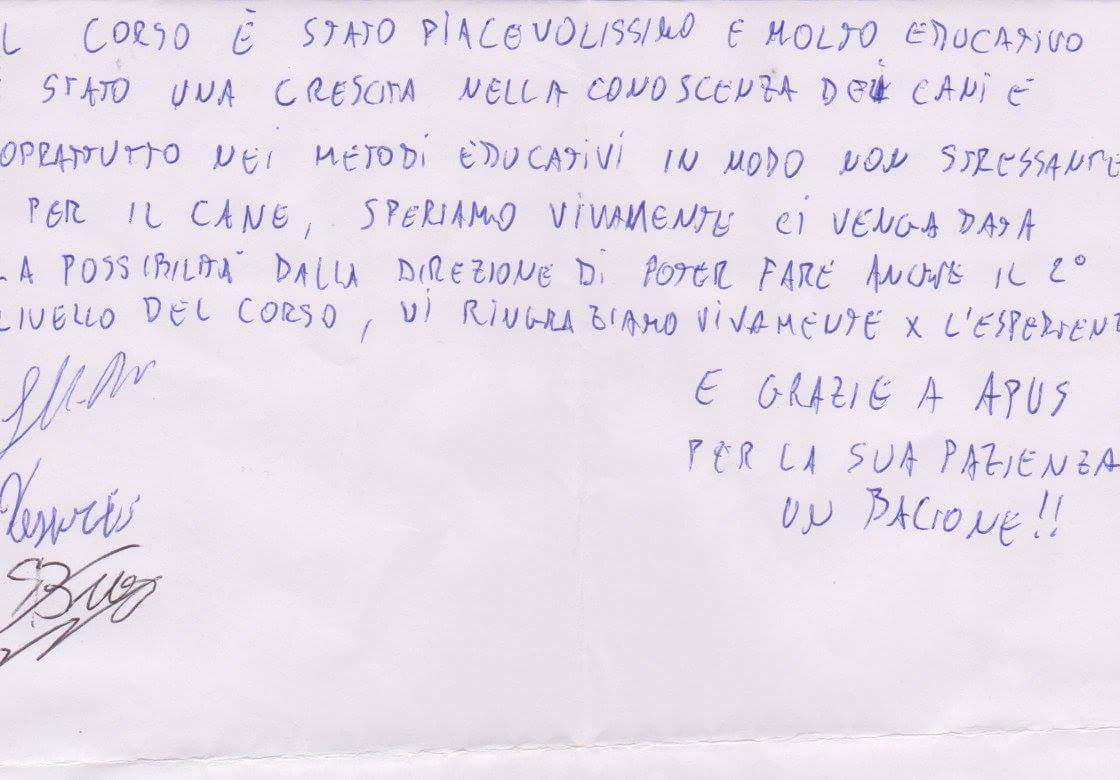 IL CORSO È STATO PIACEVOLISSIMO E MOLTO EDUCATIVO
STATO UNA CRESCITA NELLA CONOSCENZA DEI CANI E
OPRATTUTTO NEI METODI EDUCATIVI IN MODO NON STRESSANTE
PER IL CANE, SPERIAMO VIVAMENTE CI VENGA DATA
LA POSSIBILITA' DALLA DIREZIONE DI POTER FARE ANCHE IL 2°
LIVELLO DEL CORSO, VI RINGRAZIAMO VIVAMENTE X L'ESPERIENZ
E GRAZIE A APUS
PER LA SUA PAZIENZA
UN BACIONE!!